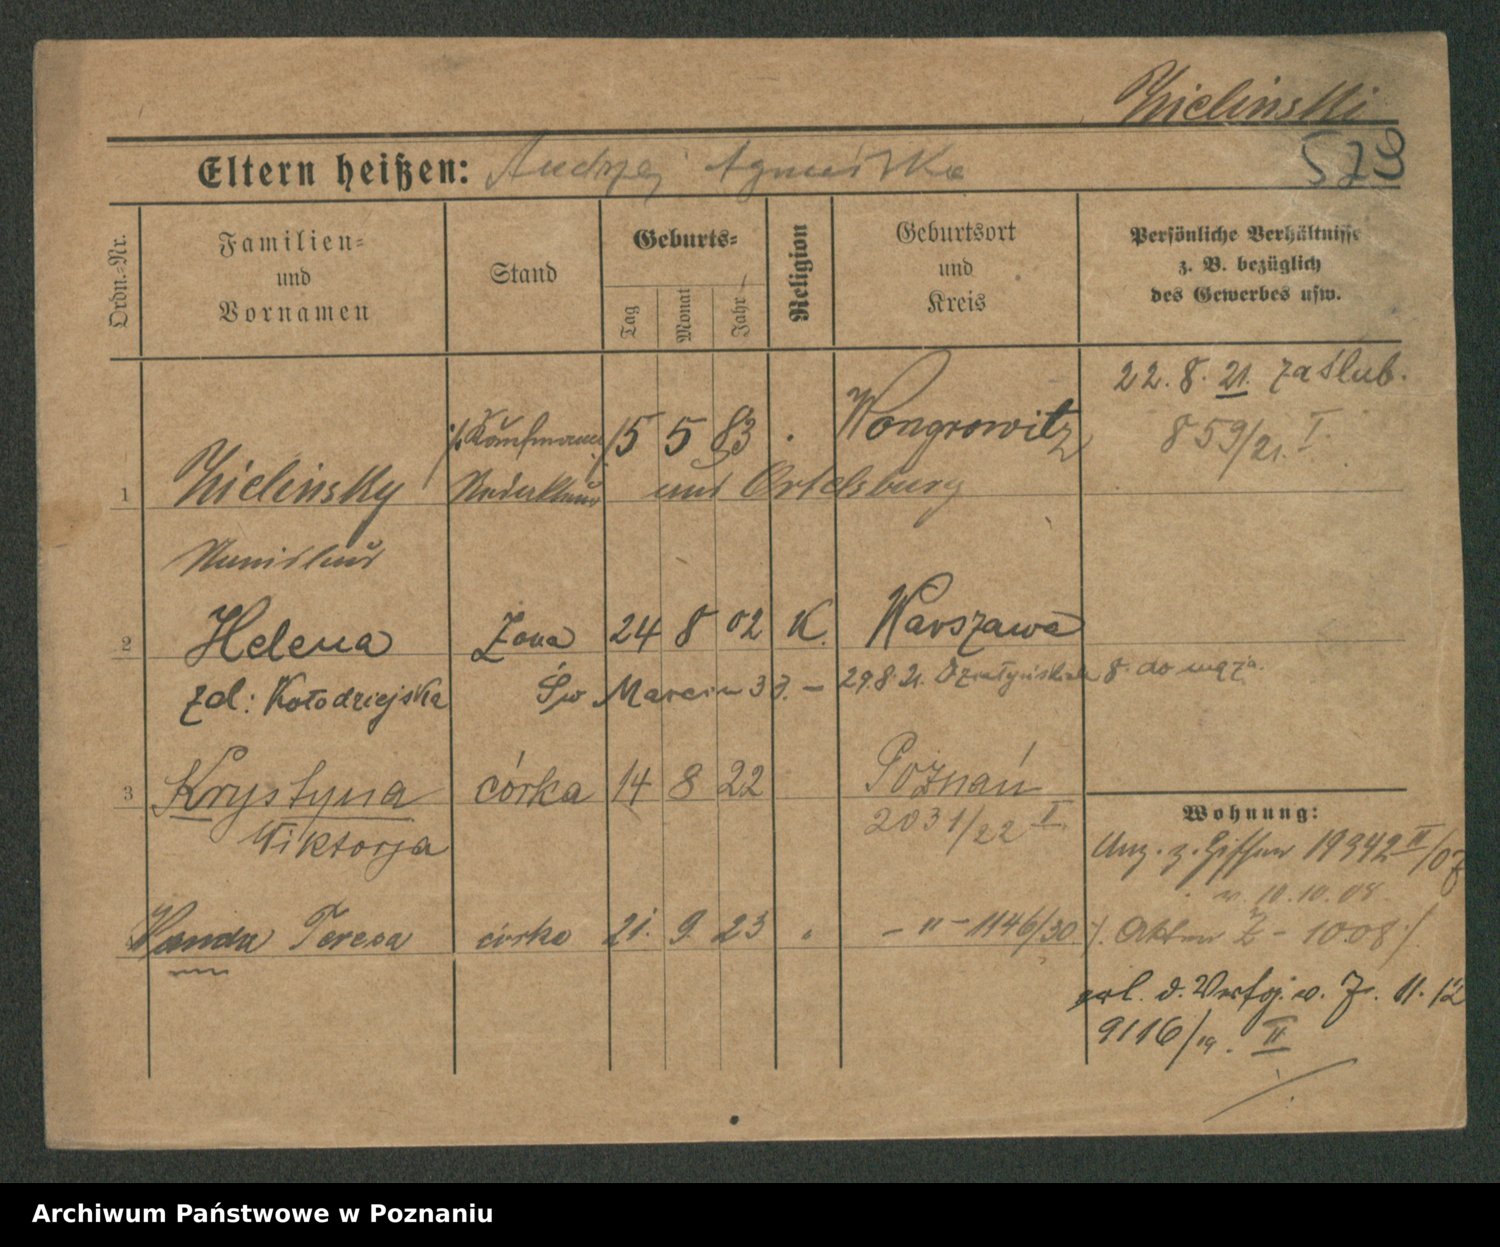 Zielinski
Eltern heißen: Andrzej Agnieszka
579
Ordn.-Nr.
Familien-
und
Vornamen
Stand
Geburts-
Tag
Monat
Jahr
Religion
Geburtsort
und
Kreis
Persönliche Verhältnisse
z. B. bezüglich
des Gewerbes usw.
22. 8. 21. zaślub.
859/21. I.
Kaufmann 15 5 83 Wongrowitz
1 Zielinsky und Ortelsburg
Stanislaus
2 Helena Żona 24 8 02 K. Warszawa
zd: Kołodziejska Św Marcin 33. – 29.8.21. Działyńskich 8. do męża.
3 Krystyna córka 14 8 22 Poznań
Wiktorja 2031/22 I
Wohnung:
Anz. z. 19342 II/07
v. 10.10.08.
Wanda Teresa córka 21. 9. 23 " – " – 1146/30
Akten Z – 1008
erl. d. Verfg. v. 11. 12
9116/19. II
Archiwum Państwowe w Poznaniu